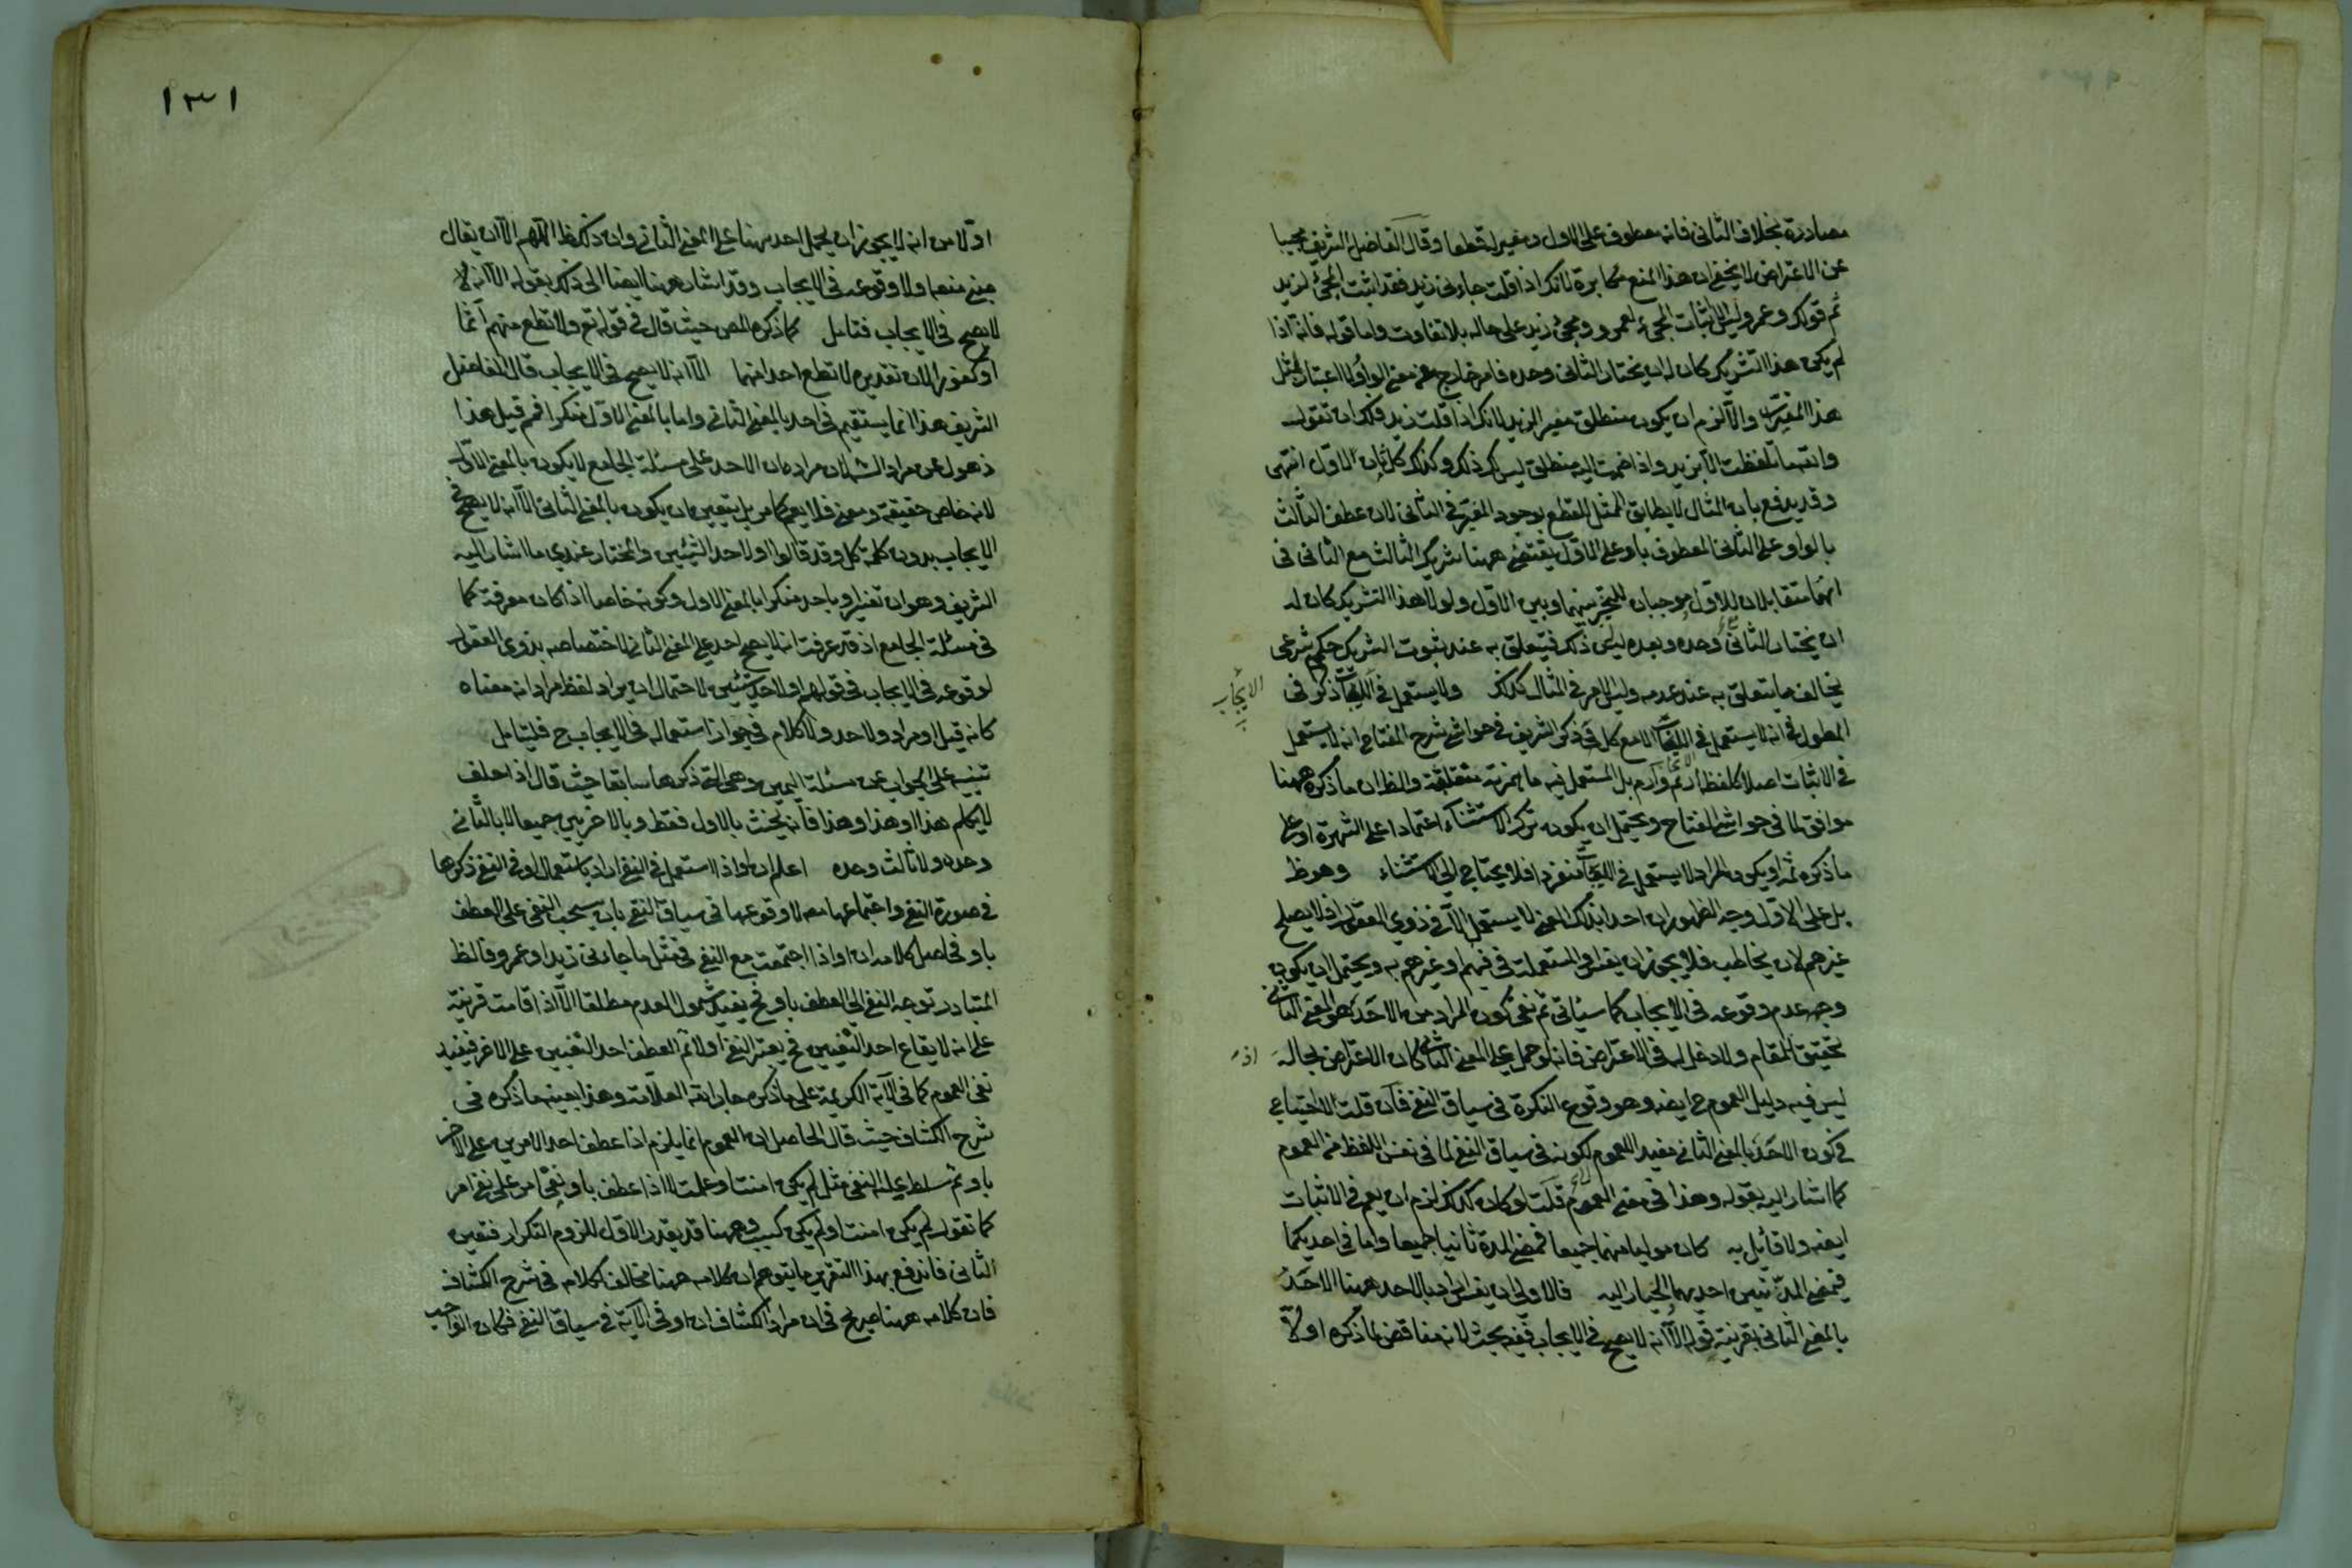 مصادرة بخلاف الثاني فانه معطوف على الاول ومغير له قطعا وقال الفاضل الشريف مجيبا
عن الاعتراض لا يخفى ان هذا المنع مكابرة لانك اذا قلت جاءني زيد فقد اثبت المجئ لزيد
ثم قولك وعمرو ليس الا اثبات المجئ لعمرو ومجئ زيد على حاله بلا تفاوت واما قوله فانه اذا
لم يكن هذا التشريك كان له ان يختار الثاني وحده فامر خارج عن معنى الواو
هذا المغير والا لزم ان يكون منطلق مغير الزيد لانك اذا قلت زيد فلك ان تقول
وانتهما تلفظت الا بزيد واذا ضممت اليه منطلق ليس لك ذلك وكذلك كل ثان الاول انتهى
وقد يدفع بان المثال لا يطابق الممثل للقطع بوجود المغير في الثاني لان عطف الثالث
بالواو على الثاني المعطوف باو على الاول يقتضى ههنا تشريك الثالث مع الثاني في
انهما متقابلان للاول موجبان للتخير بينهما وبين الاول ولولا هذا التشريك كان له
ان يختار الثاني وحده وبعده ليس ذلك فيتعلق به عند ثبوت التشريك حكم شرعي
يخالف ما يتعلق به عند عدمه وليس الامر في المثال كذلك ولا يستعمل في الايجاب ذكر في
الايجاب
المطول انه لا يستعمل في الايجاب الا مع كل وذكر الشريف في حواشي شرح المفتاح انه لا يستعمل
في الاثبات اصلا كلفظ ارم وآرم بل المستعمل فيه ما همزته منقلبة والظ ان ما ذكره ههنا
موافق لما في حواشي المفتاح ويحتمل ان يكون ترك الاستثناء اعتمادا على الشهرة او على
ما ذكره ثمه او يكون المراد لا يستعمل في الايجاب منفردا فلا يحتاج الى الاستثناء وهو ظ
بل على الاول وجه الظهور ان احدا بذلك المعنى لا يستعمل الا في ذوي العقول اذ لا يصلح
غيرهم لان يخاطب فلا يجوز ان يفسر او المستعملة في فيهم او غيرهم به ويحتمل ان يكون
وجهه عدم وقوعه في الايجاب كما سيأتي ثم نفى كون المراد من الاحد هو المعنى الثاني
تحقيق المقام ولا دخل له في الاعتراض فانه لو حمل على المعنى الثاني كان الاعتراض بحاله اذ
ليس فيه دليل العموم ح ايضه وهو وقوع النكرة في سياق النفي فان قلت الاحتياج
في كون الاحد بالمعنى الثاني مفيدا للعموم لكونه في سياق النفي لما في نفس اللفظ من العموم
كما اشار اليه بقوله وهذا في معنى العموم قلت لو كان كذلك لزم ان يعم في الاثبات
ايضه ولا قائل به كان موليا منهما جميعا فمضى المدة ثانيا جميعا واما في احديكما
فيمضى المدة تبين احديهما والخيار اليه فالاولى ان يفسر المراد بالاحد ههنا الاحد
بالمعنى الثاني بقرينة قوله الا انه لا يصح في الايجاب ففيه بحث لانه مناقض لما ذكره اولا
١٣١
اولا من انه لا يجوز ان يحمل احد ههنا على المعنى الثاني وان ذلك ظ اللهم الا ان يقال
ولا وقوعه في الايجاب وقد اشار ههنا ايضا الى ذلك بقوله الا انه لا
لا يصح في الايجاب فتامل كما ذكره المص حيث قال في قوله تع ولا تطع منهم آثما
او كفورا لان تقديره لا تطع احدا منهما الا انه لا يصح في الايجاب قال الفاضل
الشريف هذا انما يستقيم في احد بالمعنى الثاني واما بالمعنى الاول منكرا فم قيل هذا
ذهول عن مراد الشه لان مراده ان الاحد على مسئلة الجامع لا يكون بالمعنى الاول
لانه خاص حقيقة ومعنى فلا يعم كما مر بل يتعين ان يكون بالمعنى الثاني الا انه لا يصح في
الايجاب بدون كلمة كل وقد قالوا او لاحد الشيئين والمختار عندي ما اشار اليه
الشريف وهو ان تفسير او باحد منكرا بالمعنى الاول وكونه خاصا اذا كان معرفة كما
في مسئلة الجامع اذ قد عرفت انه لا يصح احد على المعنى الثاني لاختصاصه بذوي العقول
لوقوعه في الايجاب في قولهم او لاحد شيئين لاحتمال ان يراد لفظ مرادا به معناه
كانه قيل او مراد ولاحد ولا كلام في جواز استعماله في الايجاب ح فليتامل
تنبيه على الجواب عن مسئلة اليمين وهى التي ذكرها سابقا حيث قال اذا حلف
لا يكلم هذا او هذا وهذا فانه يحنث بالاول فقط وبالاخريين جميعا لا بالثاني
وحده ولا ثالث وحده اعلم ان او اذا استعمل في النفي اراد باستعمال او في النفي ذكرها
في صورة النفي واجتماعها معه لا وقوعها في سياق النفي بان يسحب النفي على العطف
باو في اصل كلامه ان او اذا اجتمعت مع النفي في مثل ما جاءني زيد او عمرو فالظ
المتبادر توجه النفي الى العطف باو فح يفيد شمول العدم مطلقا الا اذا قامت قرينة
على انه لايقاع احد النفيين فح يعتبر النفي اولا ثم العطف احد النفيين على الاخر فيفيد
نفي العموم كما في الآية الكريمة على ما ذكره جار الله العلامة وهذا بعينه ما ذكره في
شرح الكشاف حيث قال الحاصل ان العموم انما يلزم اذا عطف احد الامرين على الاخر
باو ثم سلط عليه النفي مثل لم يكن امنت او عملت لا اذا عطف باو نفي امر على نفي امر
كما تقول لم يكن امنت او لم يكن كسبت وههنا قد يقدر الاول للزوم التكرار فتعين
الثاني فاندفع بهذا التقرير ما يتوهم ان كلامه ههنا مخالف لكلامه في شرح الكشاف
فان كلامه ههنا صريح في ان مراد الكشاف ان او في الآية في سياق النفي فكان الواجب